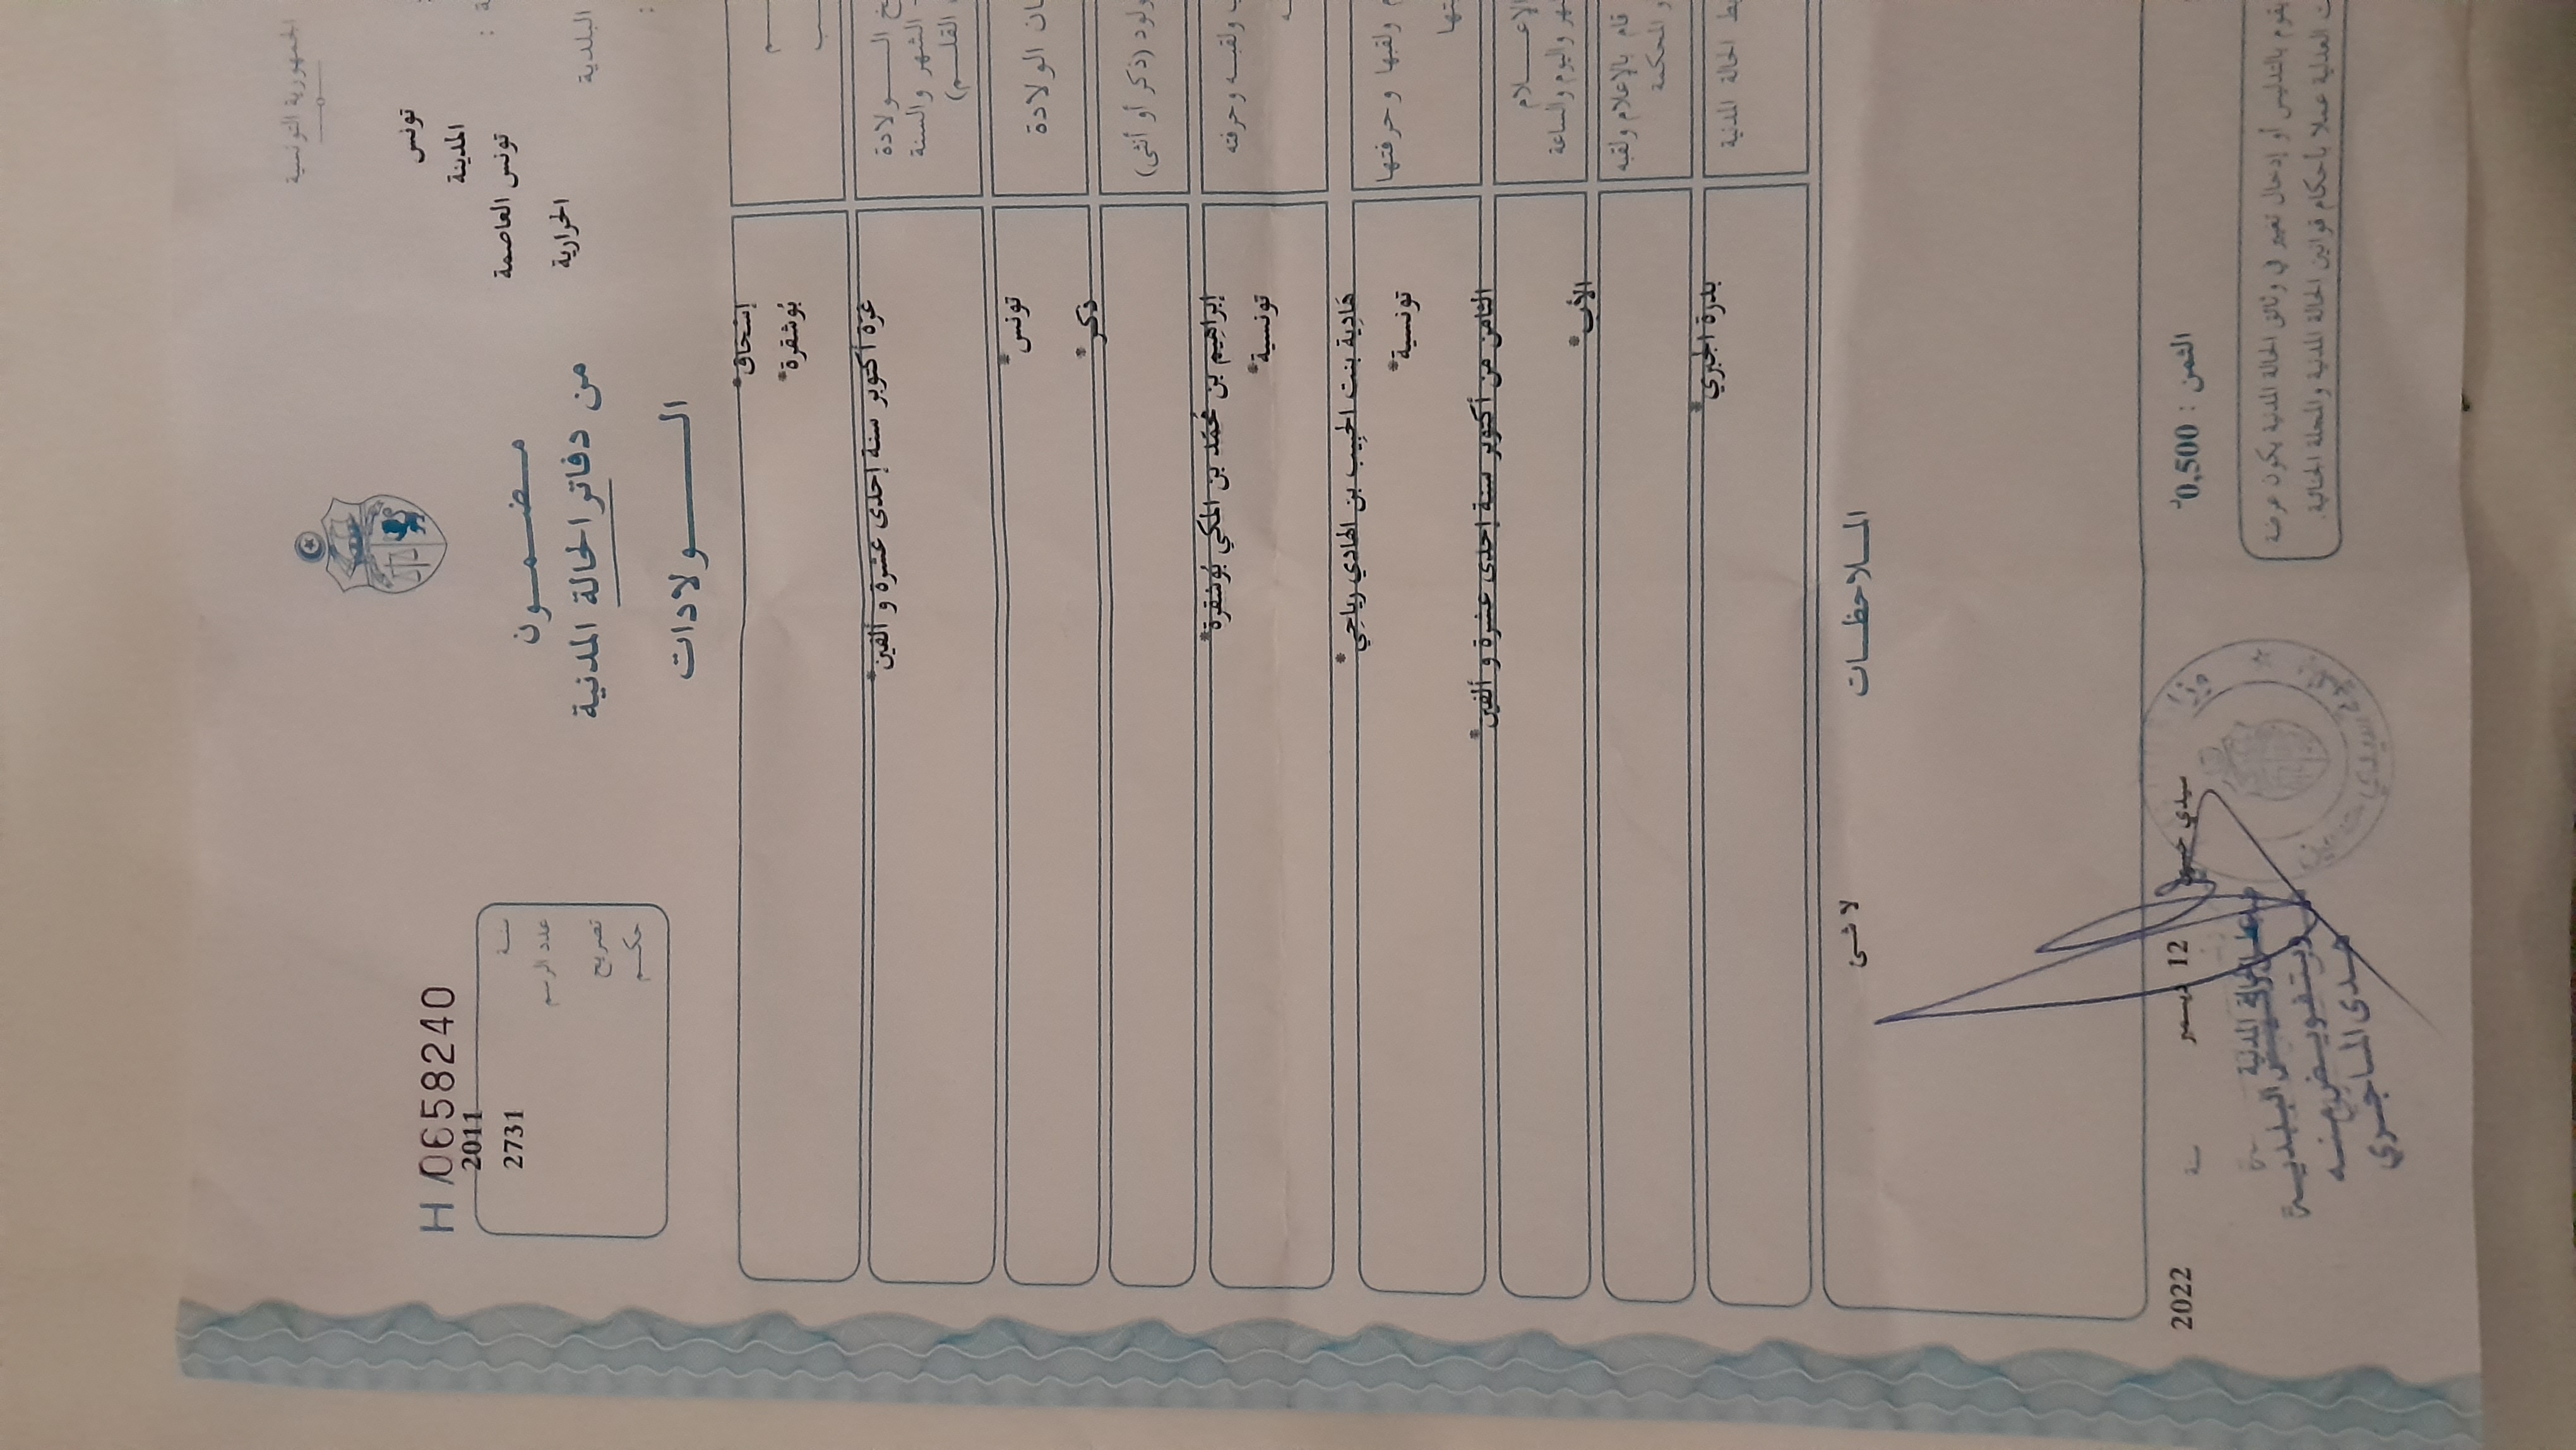 الجمهورية التونسية
تونس
المدينة
تونس العاصمة
البلدية :
الحرارية
H 0658240
2011
سنة
2731
عدد الرسم
تصريح
حكم
مضمون
من دفاتر الحالة المدنية
الولادات
إسْحَاق*
بُوشقرة*
الولادة
الشهر والسنة
القلم)
غرّة أكتوبر سنة إحدى عشرة و ألفين*
ان الولادة
تونس*
ولود (ذكر أو أنثى)
ذكر*
ولقبه وحرفته
إبراهيم بن مُحمّد بن المكي بُوشقرة*
تونسية*
ولقبها وحرفتها
هَادِية بنت الحبيب بن الهادي رياحي*
تونسية*
الإعلام
هر واليوم والساعة
الثامن من أكتوبر سنة إحدى عشرة و ألفين*
قام بالإعلام ولقبه
و المحكمة
الأب*
ط الحالة المدنية
بدرة الجبري*
الملاحظات
لا شئ
الثمن : 0,500د
سيدي حسين
12 ديسمبر
سنة 2022
ضابط الحالة المدنية
البلدية
وبتفويض منه
هدى الماجري
يقوم بالتدليس أو إدخال تغيير في وثائق الحالة المدنية يكون عرضة
ت العدلية عملا بأحكام قوانين الحالة المدنية والمجلة الجنائية.